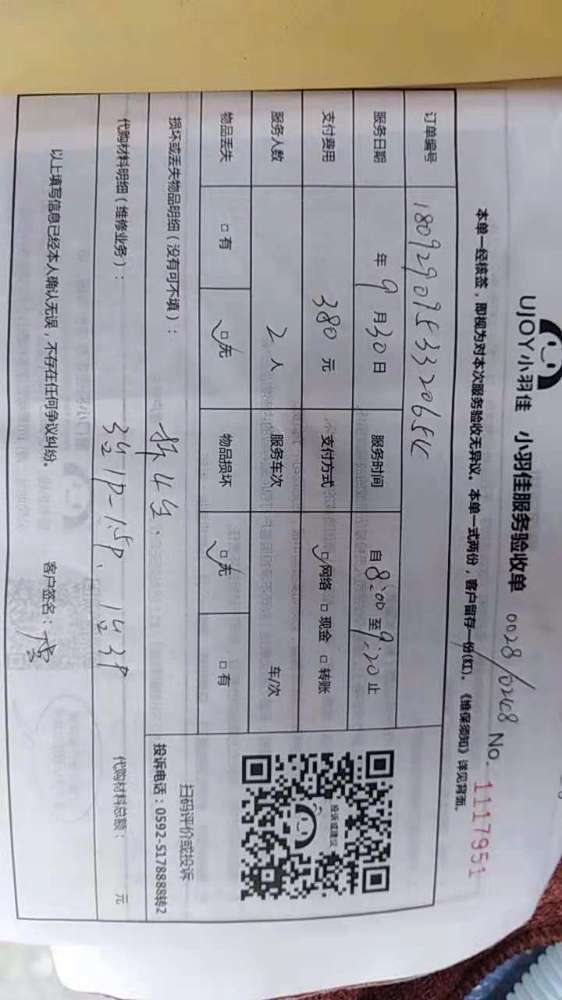 UJOY小羽佳 小羽佳服务验收单 0028/0248 No. 1117951
本单一经核签,即视为对本次服务验收无异议。本单一式两份,客户留存一份(红)。《维保须知》详见背面。
订单编号 1809290953320654
服务日期 年9月30日 服务时间 自8:00至9:20止
支付费用 380元 支付方式 ☑网络 □现金 □转账
服务人数 2人 服务车次 车/次
物品丢失 □有 ☑无 物品损坏 ☑无 □有
损坏或丢失物品明细(没有可不填):
拆4台.
代购材料明细(维修业务): 3台1P-1.5P. 1台3P 代购材料总额: 元
以上填写信息已经本人确认无误,不存在任何争议纠纷。 客户签名:
投诉或建议
扫码评价或投诉
投诉电话:0592-5178888转2